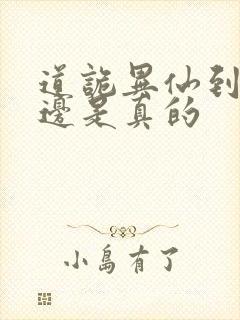 道詭異仙到
邊是真的
小島有了